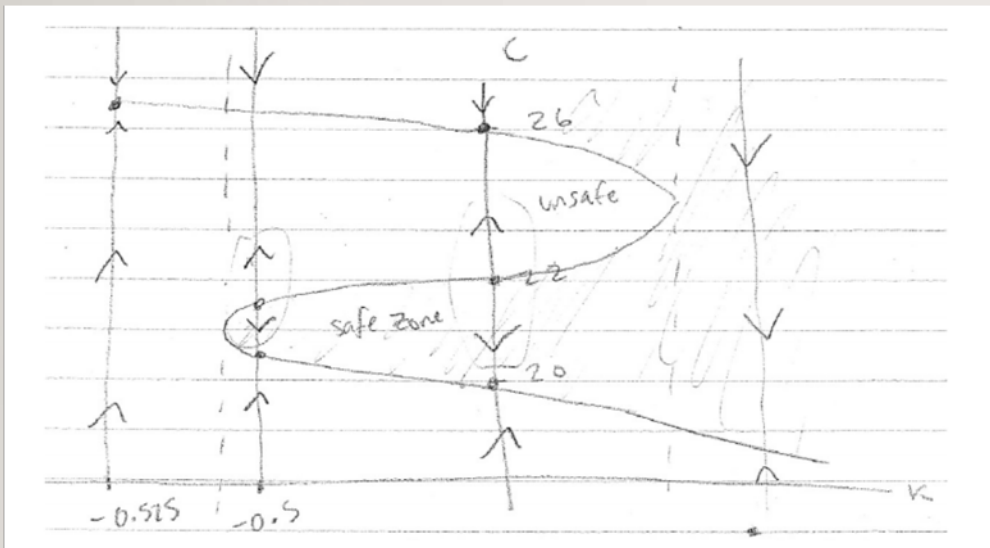 C
26
unsafe
22
safe zone
20
K
-0.525
-0.5